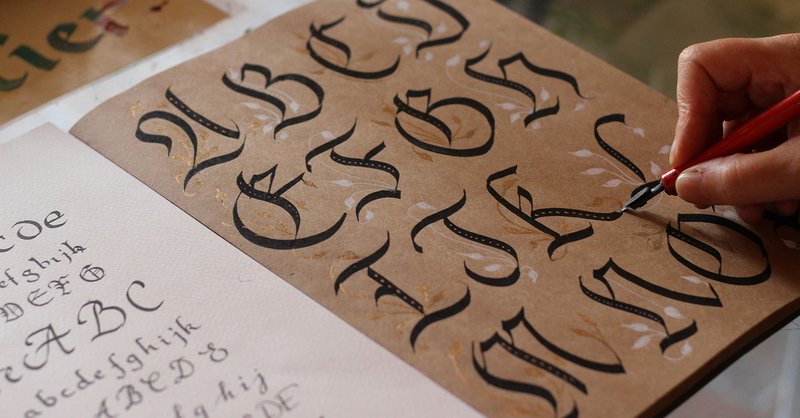 tier
A B C D
E F G H
I J K L
M N O
C D e
efghijk
D E F G
A B C
abcdefghijk
A B C D E
g hij
D E